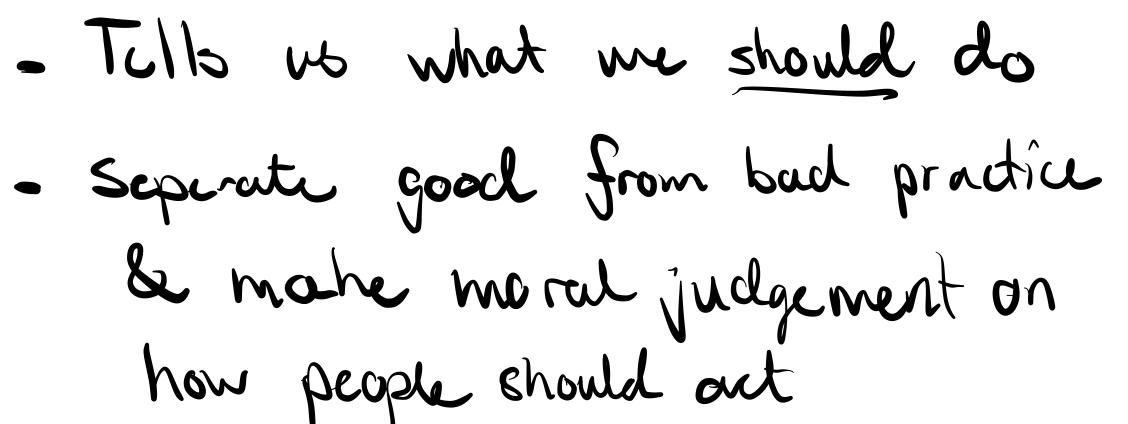 - Tells us what we should do
- Seperate good from bad practice
& make moral judgement on
how people should act